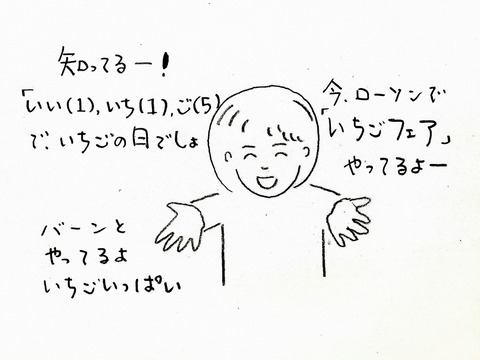 知ってるー!
「いい(1),いち(1),ご(5)
で、いちごの日でしょ
今、ローソンで
「いちごフェア」
やってるよー
バーンと
やってるよ
いちごいっぱい